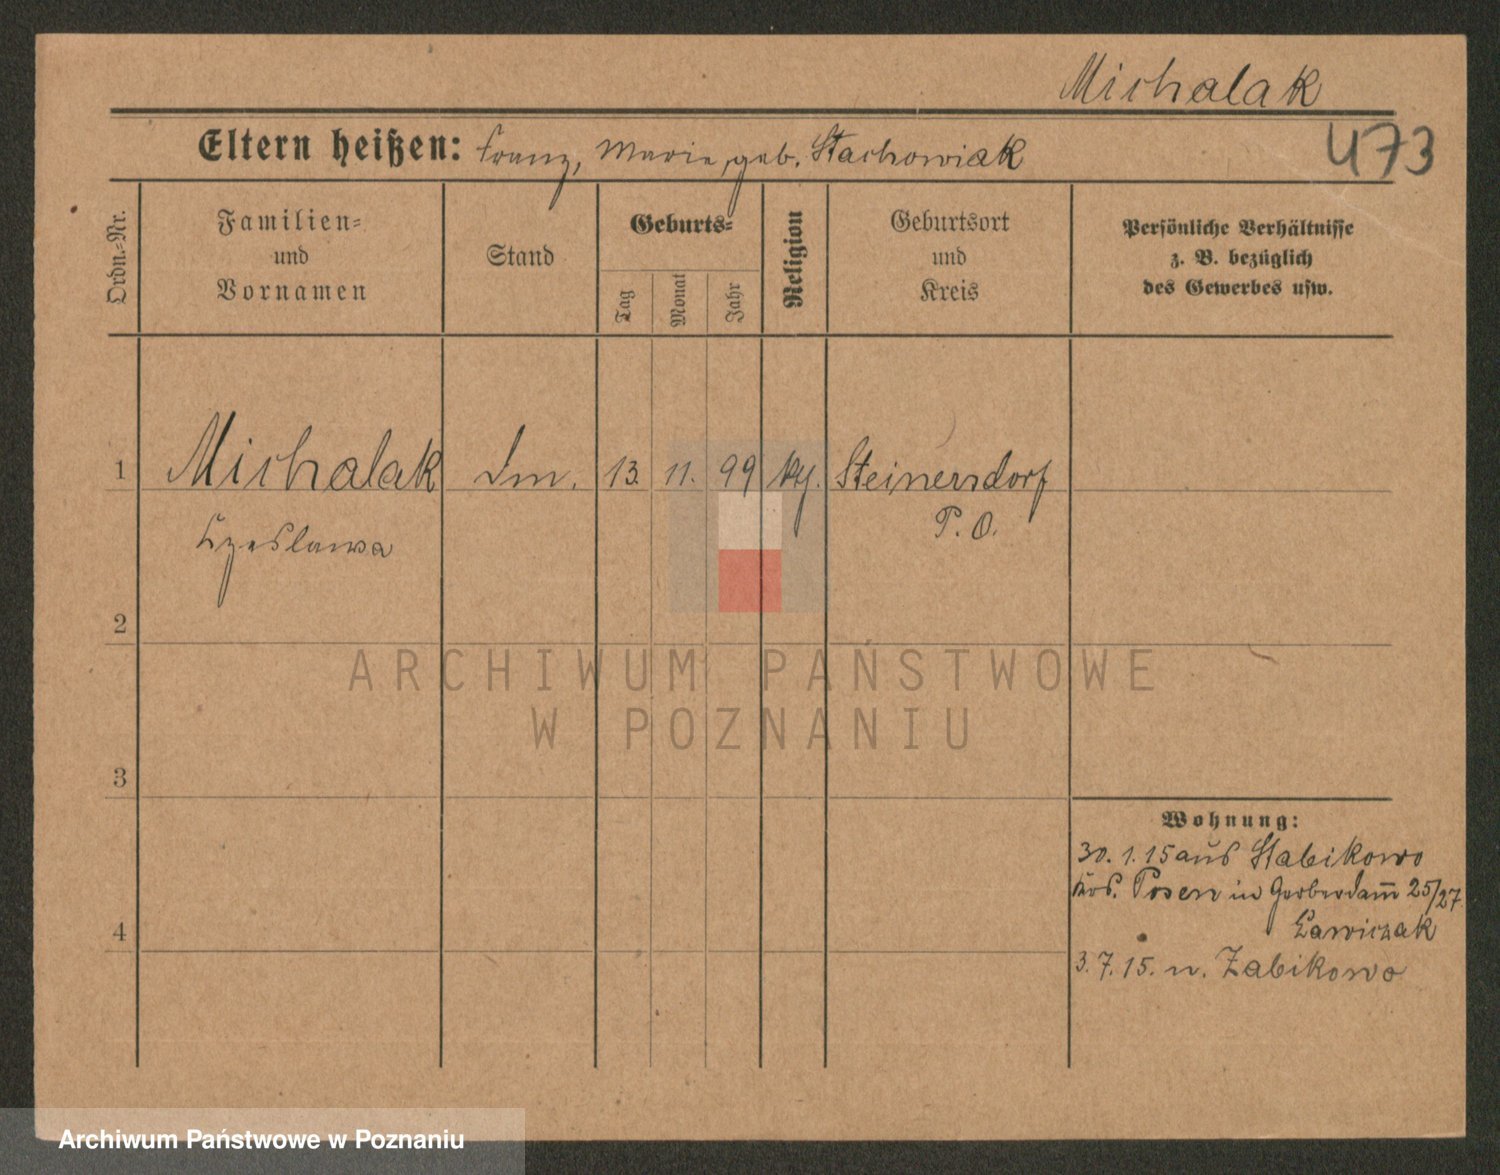 Michalak
473
Eltern heißen: Franz, Marie, geb. Stachowiak
Ordn.-Nr.
Familien-
und
Vornamen
Stand
Geburts-
Tag
Monat
Jahr
Religion
Geburtsort
und
Kreis
Persönliche Verhältnisse
z. B. bezüglich
des Gewerbes usw.
1 Michalak 13. 11. 99 Steinersdorf
Czeslawa P. O.
2
3
4
Wohnung:
30. 1. 15 aus Stabikowo
Posen in Gerberdam̅ 25/27
Ławiczak
3. 7. 15. n. Zabikowo
ARCHIWUM PAŃSTWOWE
W POZNANIU
Archiwum Państwowe w Poznaniu